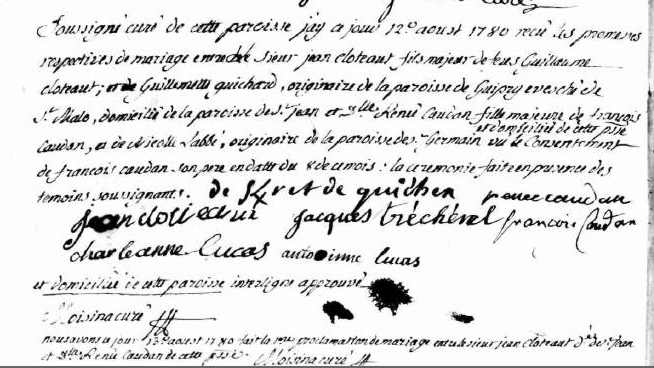 Soussigné curé de cette paroisse j'ay ajour 12e aoust 1780 reçu les promesses
respectives de mariage entre le Sieur jean cloteaut fils majeur de feus Guillaume
cloteaut, et de Guillemette guichard, originaire de la paroisse de Guipry evesché de
St. Malo, domicilié de la paroisse de St. jean et dlle Renée Caudan fille majeure de françois
et domiciliée de cette psse
caudan, et de Nicolle Labbé, originaire de la paroisse de St. Germain vu le Consentement
de francois caudan son pere en datte du 8 de ce mois : la ceremonie faite en presence des
temoins soussignants. de quichen renee caudan
jean cloteaut jacques trécherel francois Caudan
charle anne Lucas antoinne Lucas
et domiciliée de cette paroisse interligne approuvé
Moisina curé
nous avons ajour 13e aoust 1780 fait la 1ere proclamation de mariage entre le sieur jean cloteaut de St Jean
et dlle Renée Caudan de cette psse. Moisina curé